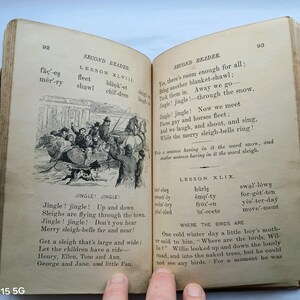 92
SECOND READER.
LESSON XLVIII.
fleet
shawl
JINGLE! JINGLE!
Jingle! jingle! Up and down
Sleighs are flying through the town.
Jingle! jingle! Don't you hear
Merry sleigh-bells far and near!
Get a sleigh that's large and wide;
Let the children have a ride—
Henry, Ellen, Tom and Ann,
George and Jane, and little Fan.
SECOND READER. 93
Yes, there's room enough for all;
Bring another blanket-shawl;
Tuck them in. Away we go—
Jingle! jingle!—through the snow.
Jingle! jingle! Now we meet
Prancing grays and horses fleet;
And we laugh, and shout, and sing,
While the merry sleigh-bells ring!
a sentence having in it the word snow, and
another sentence having in it the word sleigh.
LESSON XLIX.
WHERE THE BIRDS ARE.
One cold winter day a little boy's moth-
er said to him, "Where are the birds, Wil-
lie?" Willie looked up and down the lonely
road, and into the naked trees, but he could
not see any birds. For a moment he was
15 5G